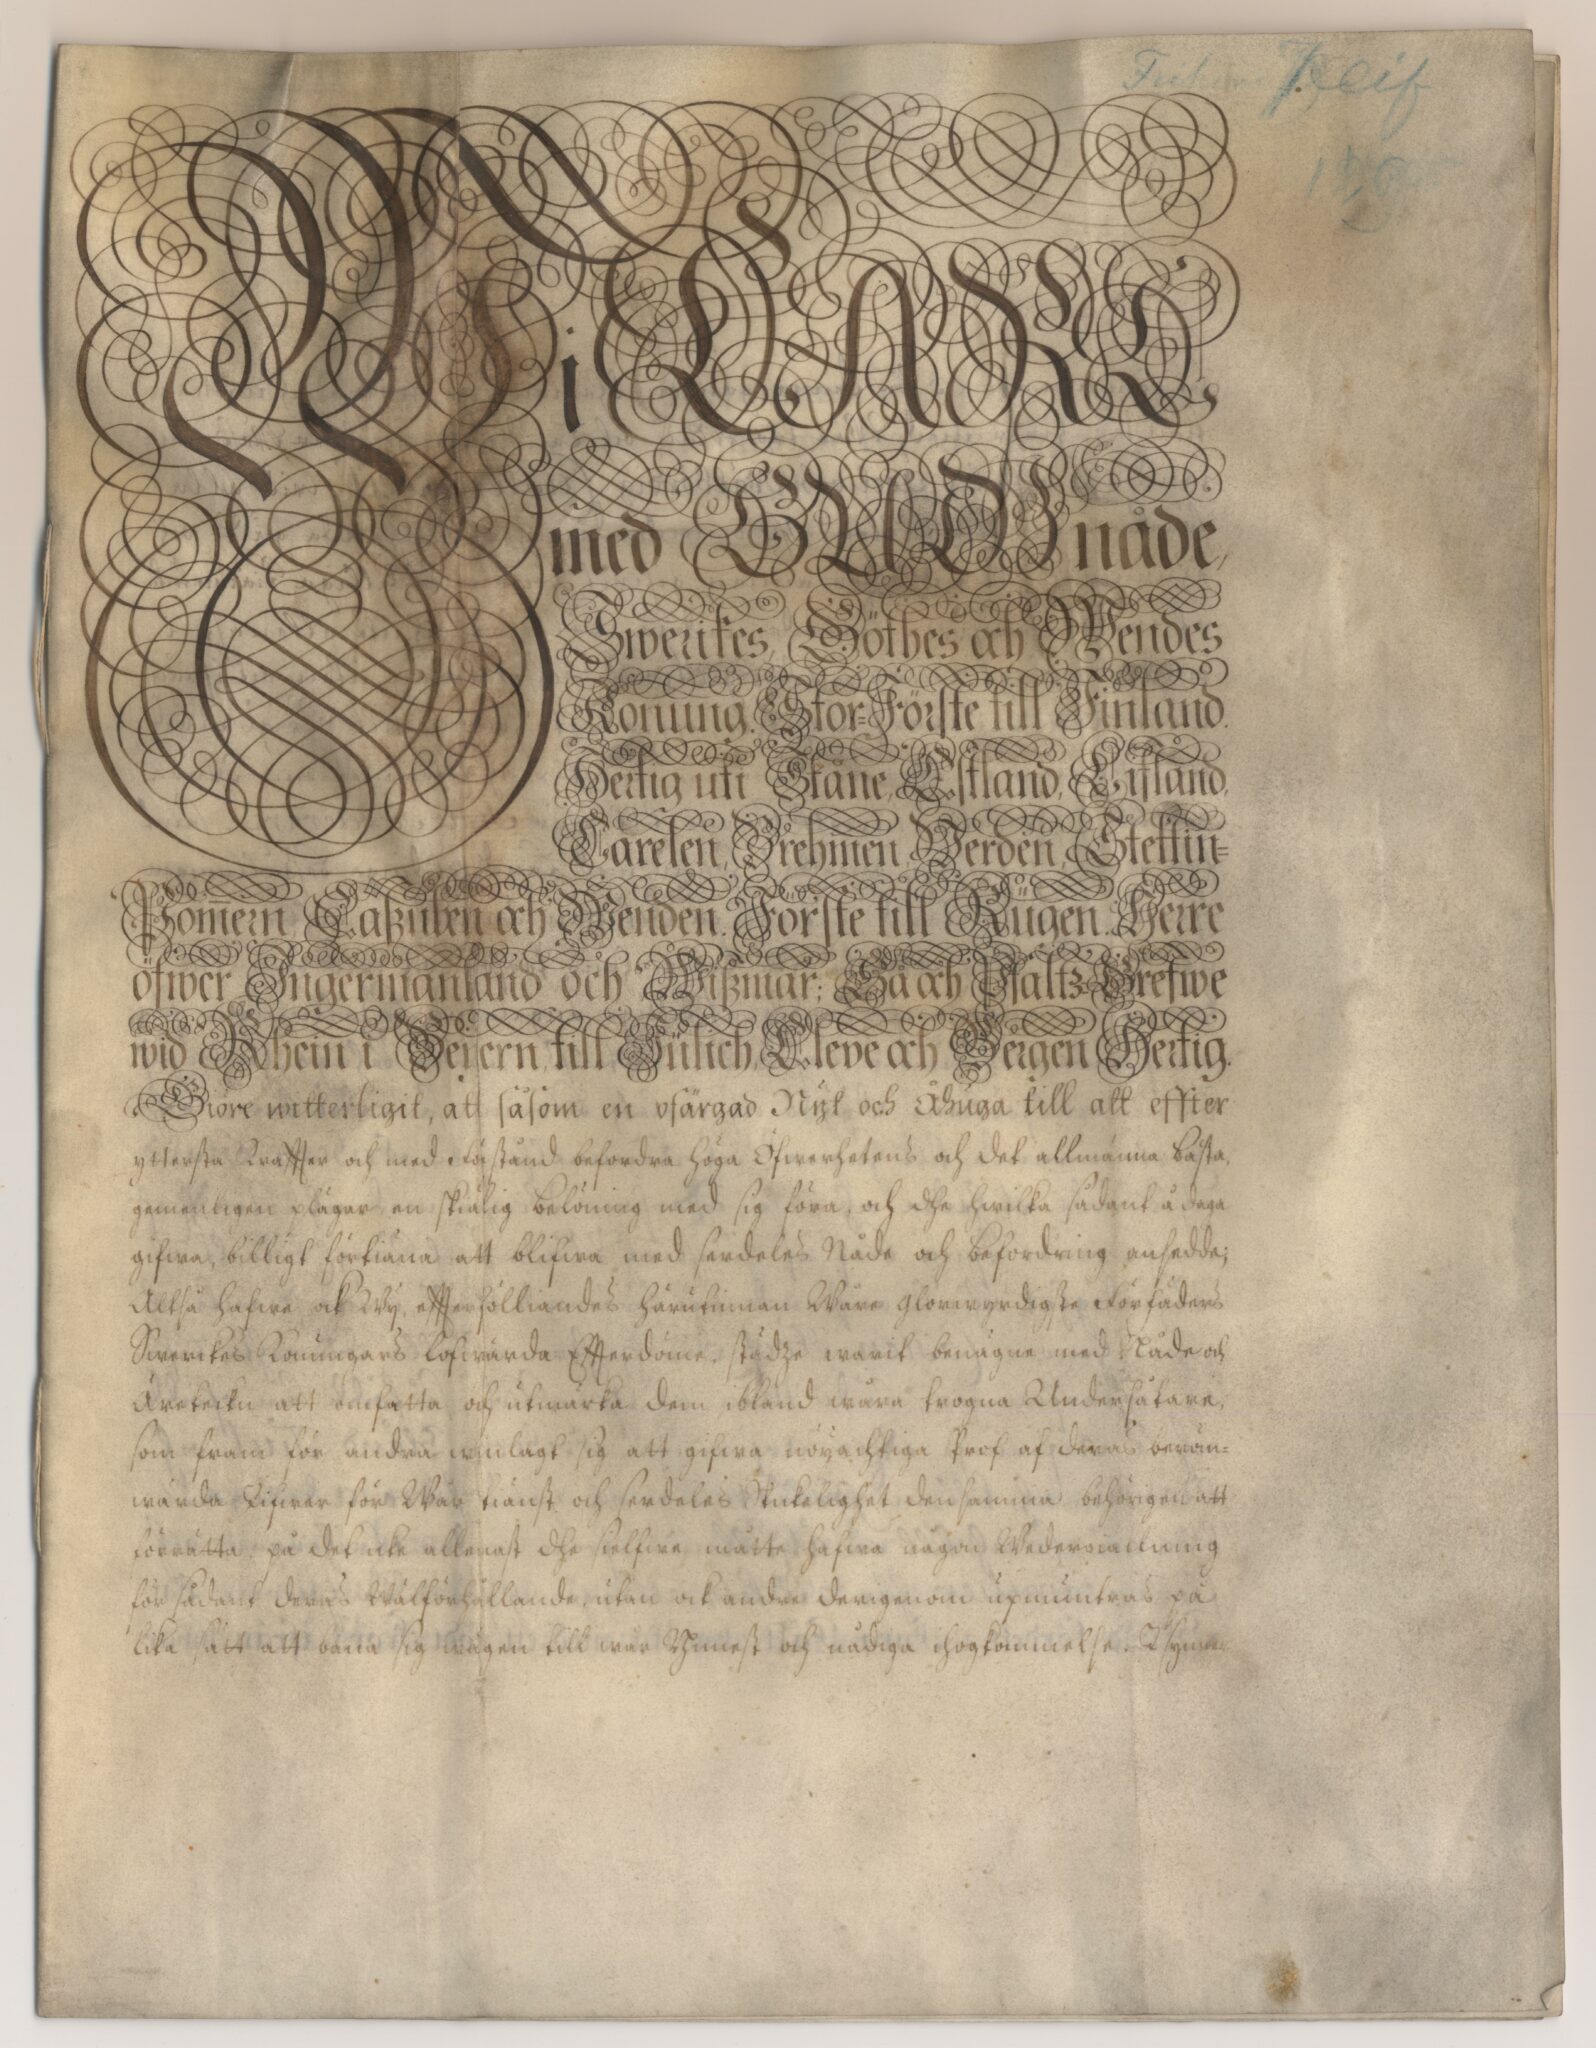 Wi CARL
med GUDZ nåde,
Swerikes, Göthes och Wendes
Konung, Stor-Förste till Finland.
Hertig uti Skåne, Estland, Lifland,
Carelen, Brehmen, Verden, Stettin-
Pomern, Caßuben och Wenden. Förste till Rügen. Herre
öfwer Ingermanland och Wißmar; Så och Pfaltz-Grefwe
wid Rhein i Beyern, till Jülich, Cleve och Bergen Hertig.
Giöre witterligit, att såsom en ofärgad Nijt och åhuga till att effter
yttersta Kraffter och med Förstånd befordra höga Öfwerhetens och det allmänna bästa,
gemenligen plägar en skiälig belöning med sig föra, och dhe hwilka sådant å daga
gifwa, billigt förtiäna att blifwa med serdeles Nåde och befordring ansedde;
Altså hafwe ock Wij, effterfölliandes härutinnan Wåre Glorwyrdigste Förfäders
Swerikes Konungars lofwärda Effterdöme, städze warit benägne med Nåde och
Äretekn att omfatta och utmärka dem ibland wåra trogna Undersåtare,
som fram för andra winlagt sig att gifwa nöyachtiga Prof af deras beröm-
wärda Iifwer för Wår tiänst och serdeles Skickelighet densamma behörigen att
förrätta, på det icke allenast dhe sielfwe måtte hafwa någon Wedergiällning
för sådant deras Wälförhållande, utan ock andre derigenom upmuntras på
lika sätt att bana sig wägen till wår Ynnest och nådiga ihogkommelse.